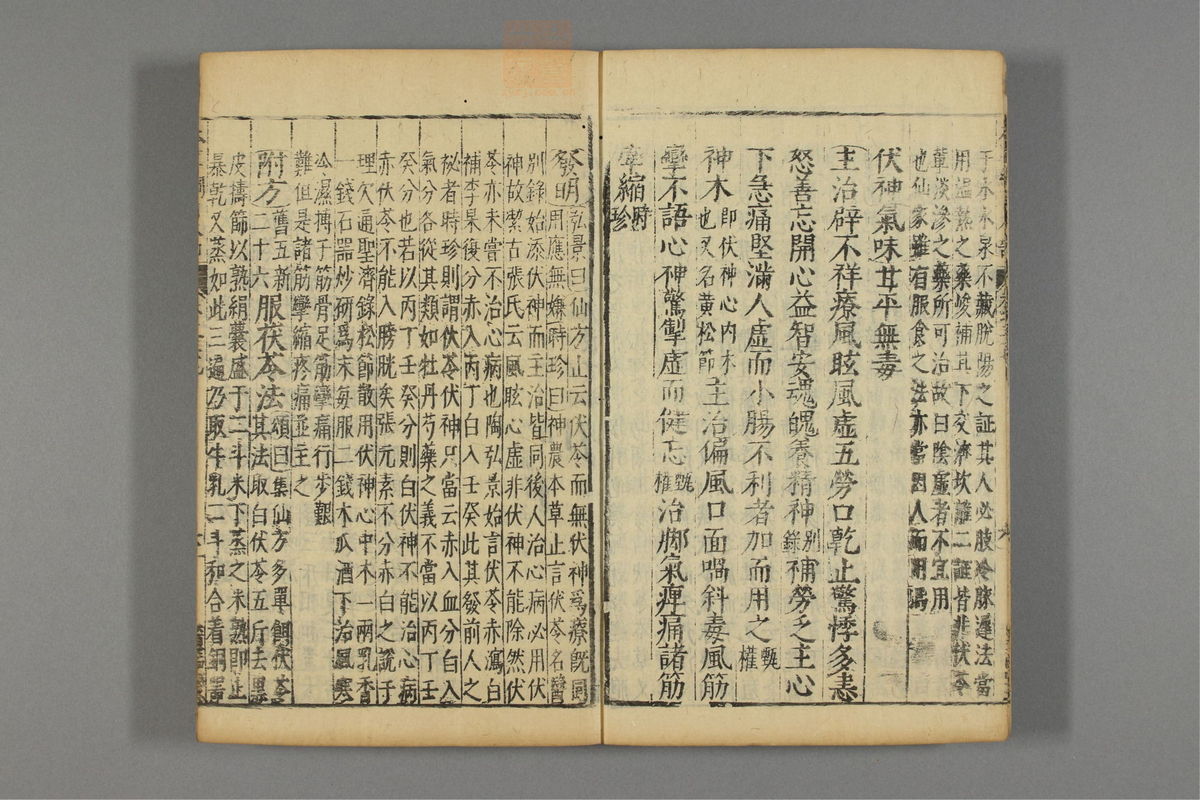 于氷氷泉不藏脫陽之証其人必肢冷脉遲法當
用溫熱之藥峻補其下交濟坎離二証皆非伏苓
輩淡滲之藥所可治故曰陰虛者不宜用
也仙家雖有服食之法亦當因人而用焉
伏神氣味甘平無毒
主治辟不祥療風眩風虛五勞口乾止驚悸多恚
怒善忘開心益智安魂魄養精神別錄補勞乏主心
下急痛堅滿人虛而小腸不利者加而用之甄權
神木即伏神心內木也又名黃松節主治偏風口面喎斜毒風筋
攣不語心神驚掣虛而健忘甄權治脚氣痹痛諸筋
牽縮時珍
發明弘景曰仙方止云伏苓而無伏神爲療既同
用應無嫌時珍曰神農本草止言伏苓名醫
別錄始添伏神而主治皆同後人治心病必用伏
神故潔古張氏云風眩心虛非伏神不能除然伏
苓亦未嘗不治心病也陶弘景始言伏苓赤瀉白
補李杲後分赤入丙丁白入壬癸此其發前人之
秘者時珍則謂伏苓伏神只當云赤入血分白入
氣分各從其類如牡丹芍藥之義不當以丙丁壬
癸分也若以丙丁壬癸分則白伏神不能治心病
赤伏苓不能入膀胱矣張元素不分赤白之說于
理欠通聖濟錄松節散用伏神心中木一兩乳香
一錢石器炒研爲末每服二錢木瓜酒下治風寒
冷濕搏于筋骨足筋攣痛行步艱
難但是諸筋攣縮疼痛並主之
附方舊五新二十六服茯苓法頌曰集仙方多單餌伏苓
其法取白伏苓五斤去黑
皮擣篩以熟絹囊盛于二斗米下蒸之米熟即止
暴乾又蒸如此三遍乃取牛乳二斗和合着銅器